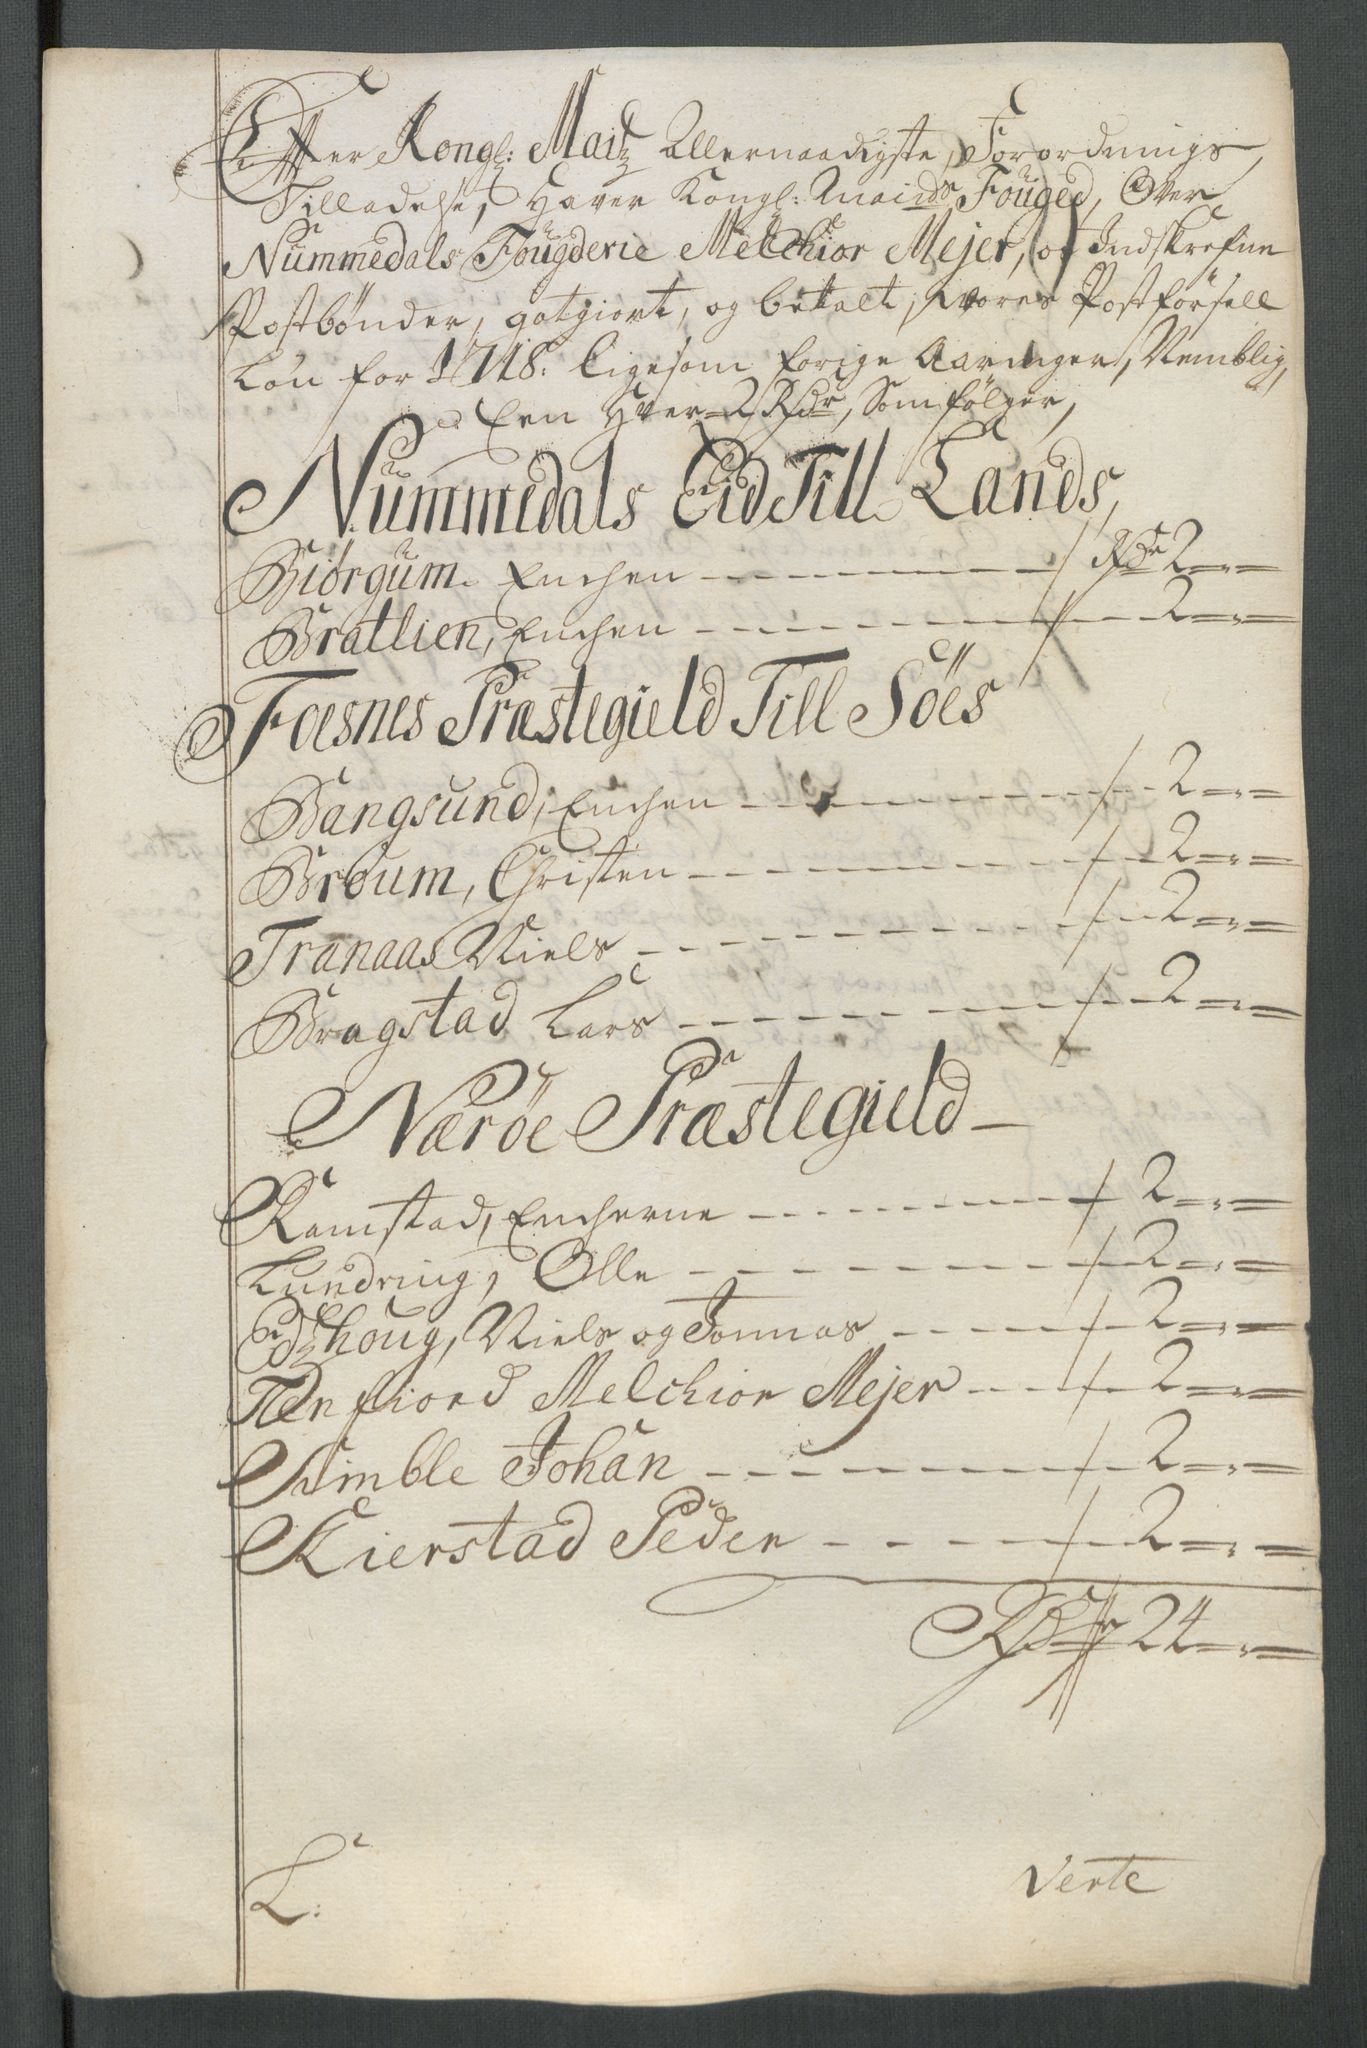 Effter Kongl: Maitz Allernaadigste, Forordnings,
Tilladelse, Haver Kongl: Maids Fouged, Over
Nummedals Fougderie Melchior Mejer, os Indskrefne
Postbønder, gotgiort, og betalt, vores Postførsell
Løn for 1718. ligesom forige Aaringer, Nemblig,
Een Hver 2 Rdr, Som følger,
Nummedals Eid Till Lands,
Biørgum. Enchen / Rdr 2
Bratlien, Enchen / 2
Foesnes Præstegield Till Söes
Bangsund, Enchen / 2
Brøum, Christen / 2
Tranaas Niels / 2
Bragstad Lars / 2
Nærøe Præstegield
Ramstad, Encherne / 2
Lundring, Olle / 2
Edzhoug, Niels og Tommas / 2
Tenfiord Melchior Mejer / 2
Simble Johan / 2
Kierstad Peder / 2
Rdr 24
L:
Verte